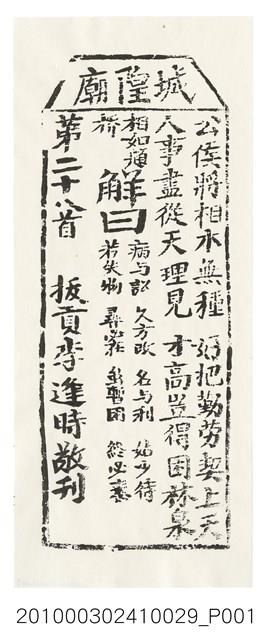 城隍廟
公侯將相本無種 好把勤勞契上天
人事盡從天理見 才高豈得困林泉
相如題
橋
解曰
病与訟 久方改 名与利 姑少待
若失物 暫困 終必泰
第二十八首 拔貢李逢時敬刊
201000302410029_P001